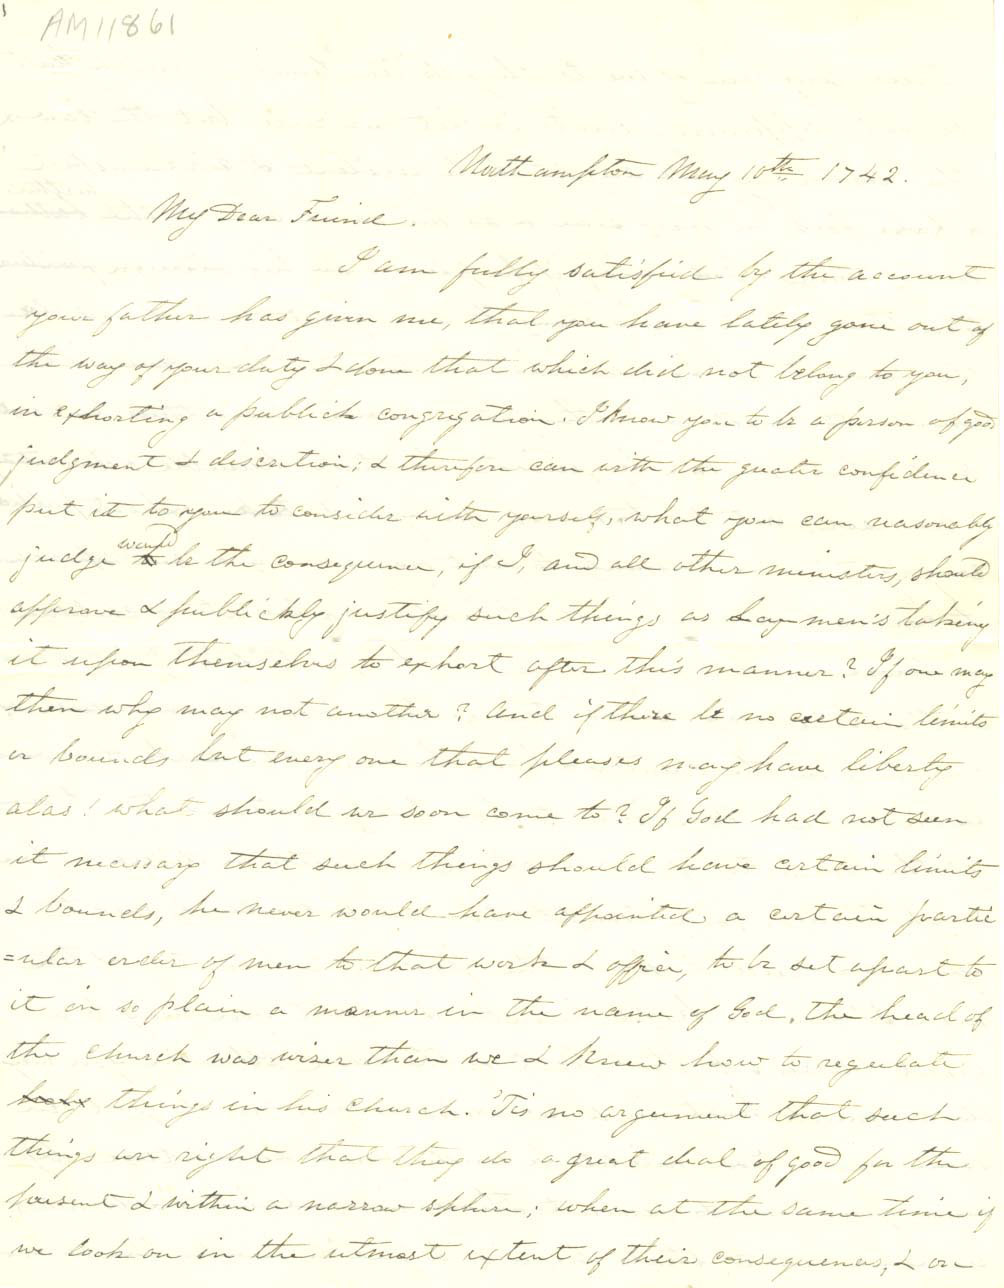 AM11861
Northampton May 10th 1742.
My Dear Friend.
I am fully satisfied by the account
your father has given me, that you have lately gone out of
the way of your duty & done that which did not belong to you,
in exhorting a publick congregation. I know you to be a person of good
judgment & discretion; & therefore can with the greater confidence
put it to you to consider with yourself, what you can reasonably
judge would be the consequence, if I, and all other ministers, should
approve & publickly justify such things as Laymen's taking
it upon themselves to exhort after this manner? If one may
then why may not another? And if there be no certain limits
or bounds but every one that pleases may have liberty
alas! what should we soon come to? If God had not seen
it necessary that such things should have certain limits
& bounds, he never would have appointed a certain partic
=ular order of men to that work & office, to be set apart to
it in so plain a manner in the name of God. The head of
the church was wiser than we & knew how to regulate
things in his church. 'Tis no argument that such
things are right that they do a great deal of good for the
present & within a narrow sphere; when at the same time if
we look on in the utmost extent of their consequences, & on